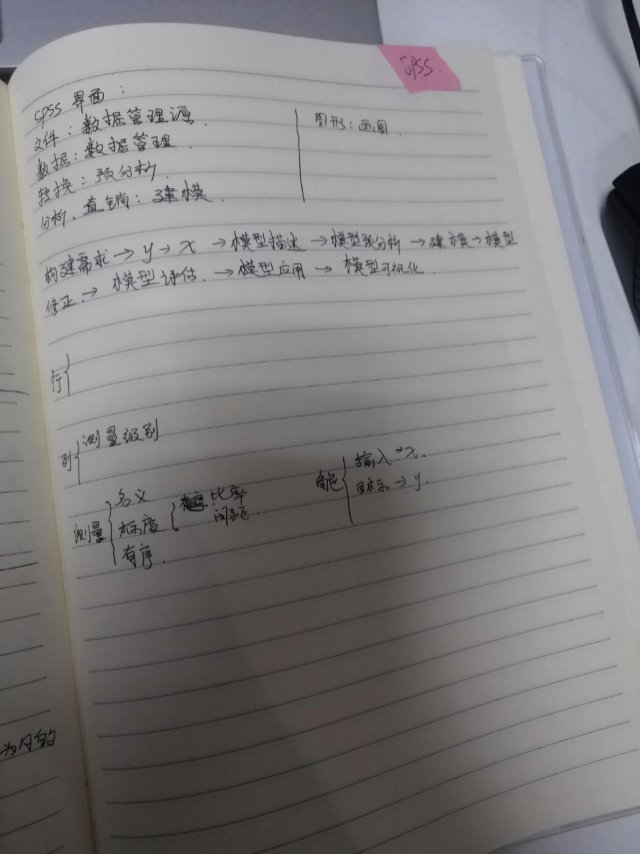 spss
spss 界面:
文件:数据管理源.
数据:数据管理.
转换:预分析.
分析,直销:建模.
图形:画图.
构建需求→y→x→模型描述→模型预分析→建模→模型
修正→模型评估.→模型应用→模型可视化.
行{
列{测量级别
测量{名义
标度{比率
间距.
有序.
角色{输入→x.
目标→y.
为何的